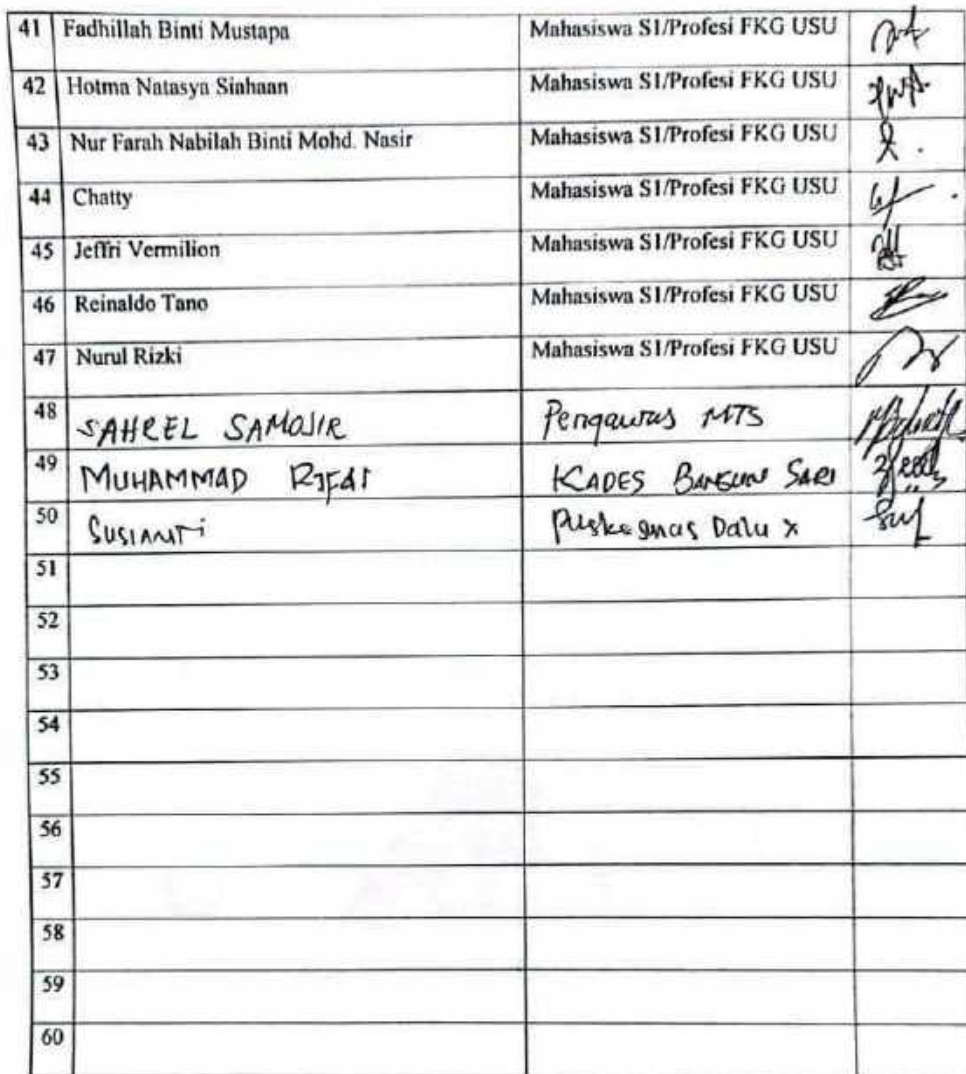 41 Fadhillah Binti Mustapa Mahasiswa S1/Profesi FKG USU
42 Hotma Natasya Siahaan Mahasiswa S1/Profesi FKG USU
43 Nur Farah Nabilah Binti Mohd. Nasir Mahasiswa S1/Profesi FKG USU
44 Chatty Mahasiswa S1/Profesi FKG USU
45 Jeffri Vermilion Mahasiswa S1/Profesi FKG USU
46 Reinaldo Tano Mahasiswa S1/Profesi FKG USU
47 Nurul Rizki Mahasiswa S1/Profesi FKG USU
48 SAHREL SAMOSIR Pengawas MTS
49 MUHAMMAD KADES BANGUN SARI
50 SUSIANTI Puskesmas Dalu X
51
52
53
54
55
56
57
58
59
60